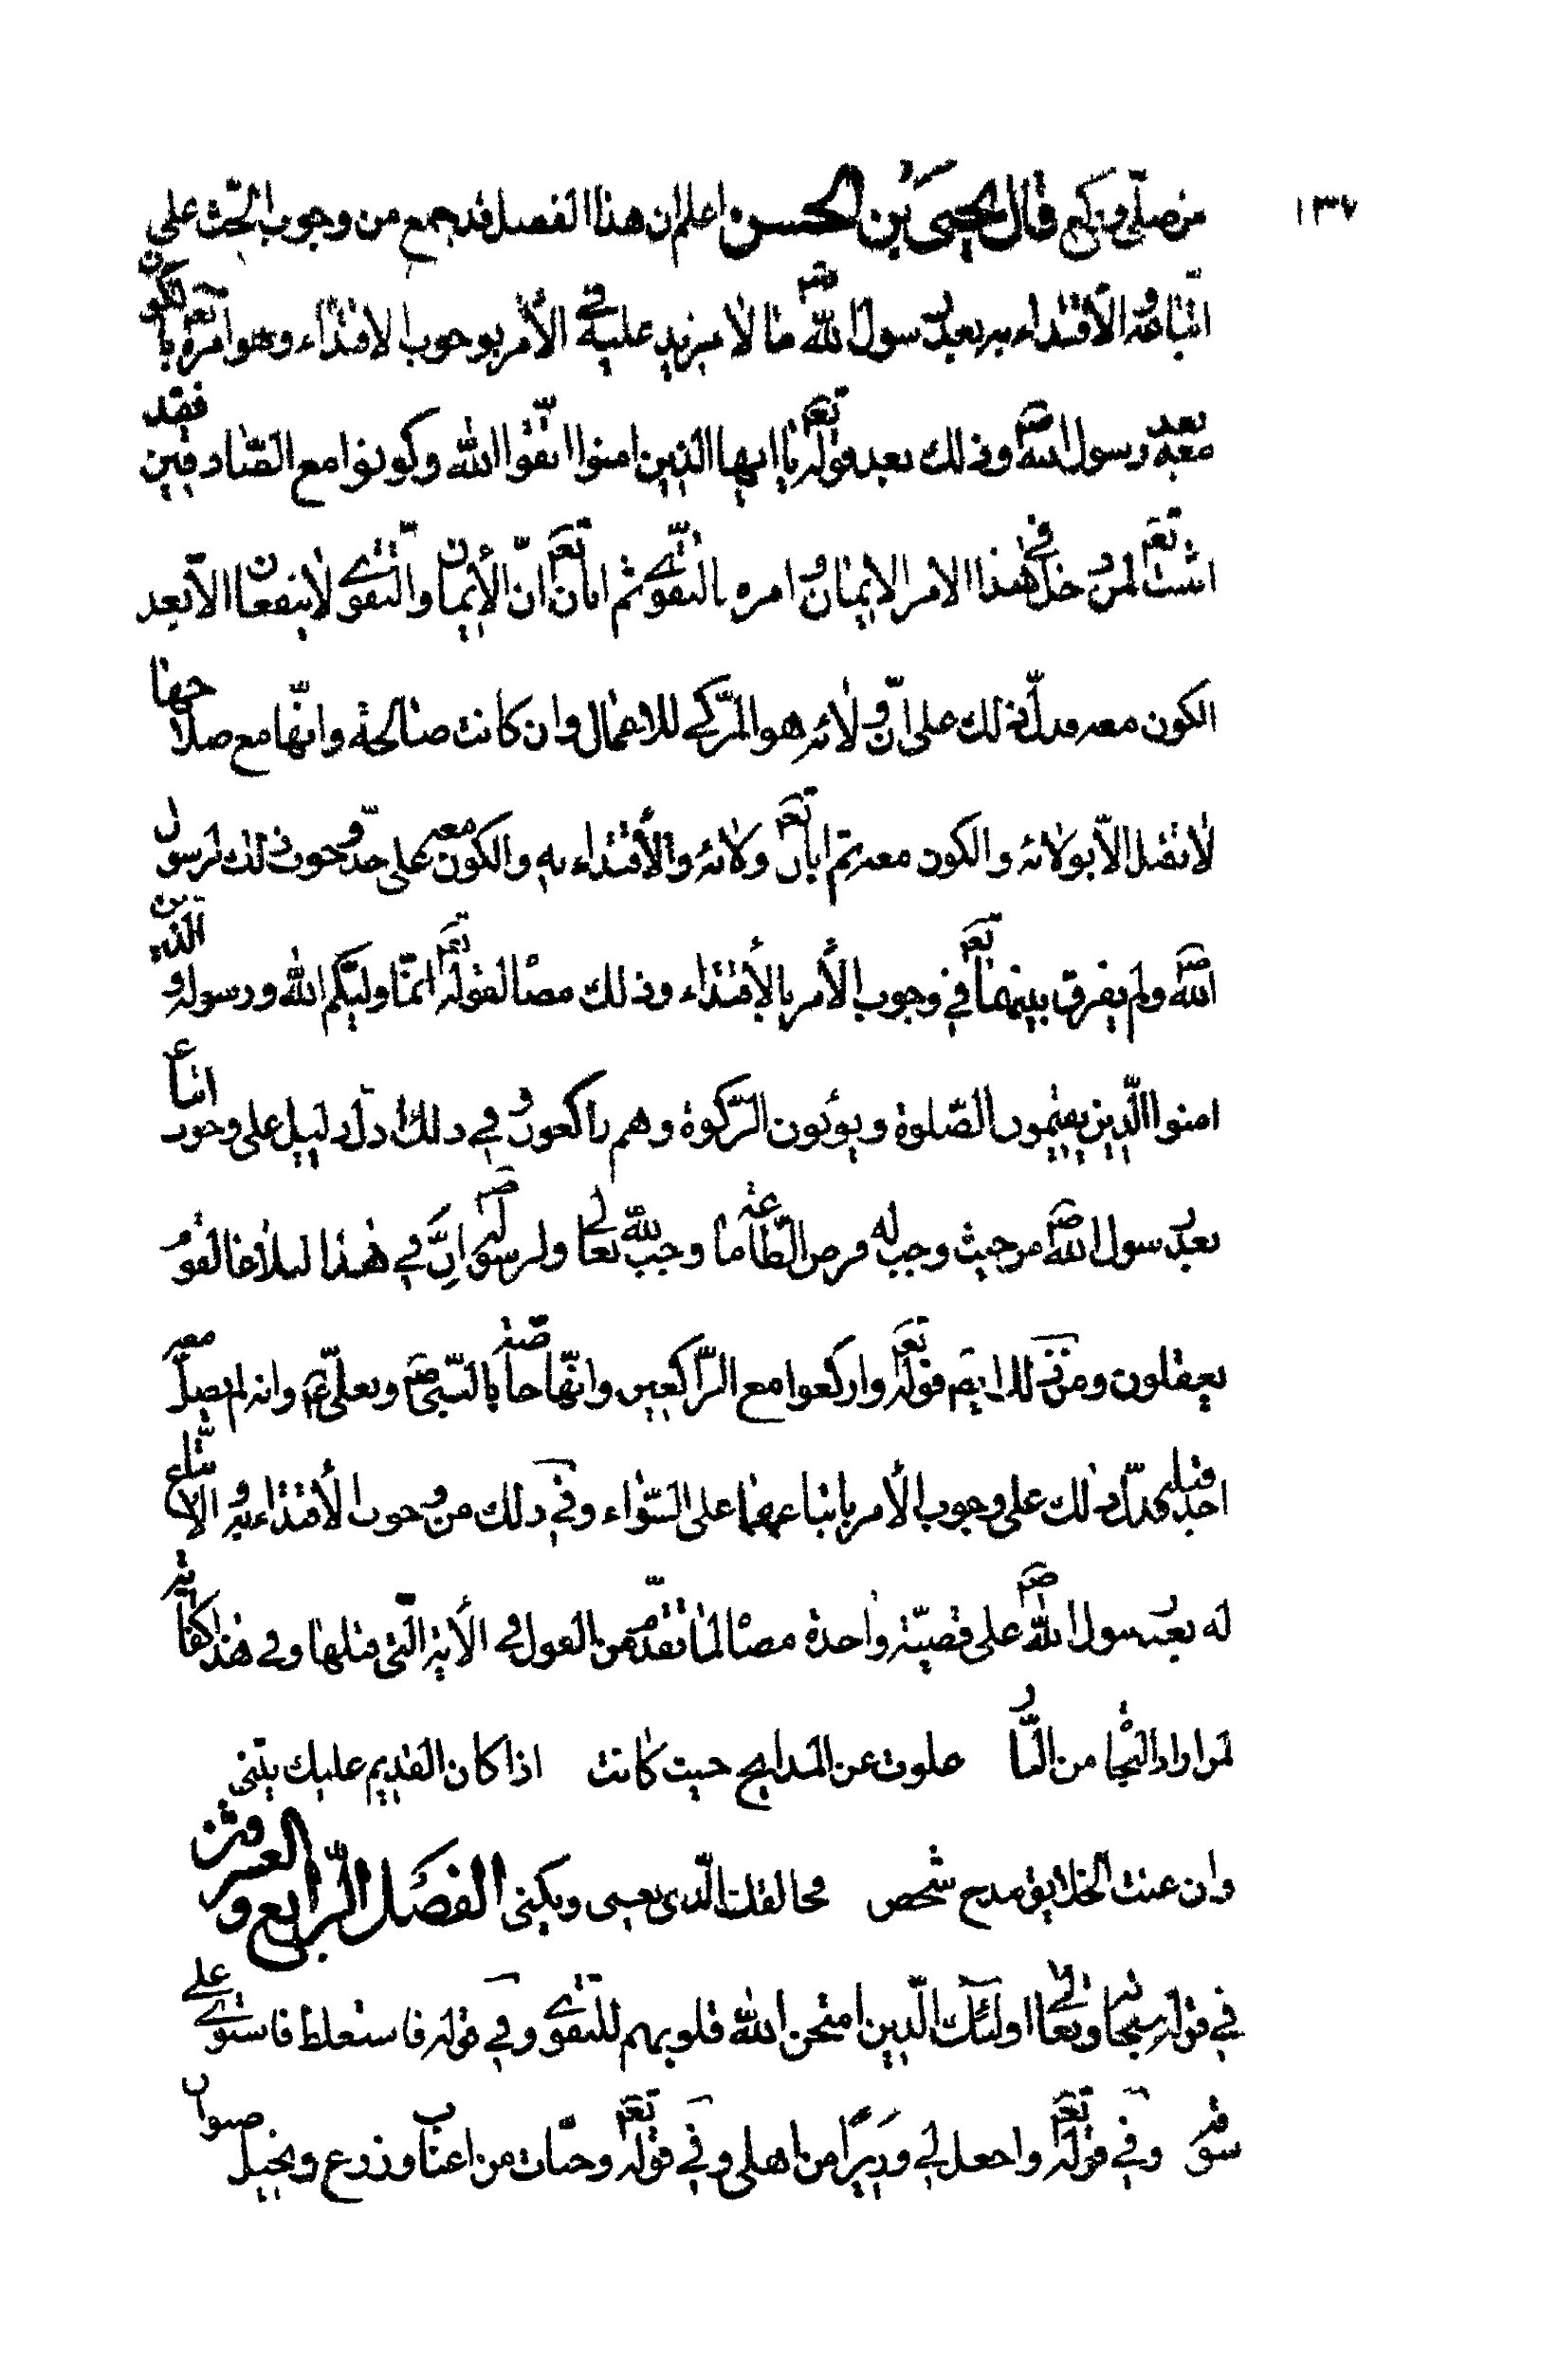 ١٣٧
من صلّى و ركع قال يحيى بن الحسن اعلم ان هذا الفصل قد جمع من وجوب الحث على
اتباعه و الاقتداء به بعد رسول الله ص ما لا مزيد عليه في الأمر بوجوب الاقتداء وهو امره تع بالكون
معه بعد رسول الله ص وذلك بعد قوله تع يا ايها الذين امنوا اتقوا الله وكونوا مع الصادقين فقد
اثبت تع لمن دخل في هذا الامر الايمان و امره بالتقوى ثم ابان تع انّ الأيمان والتقوى لا ينفعان الا بعد
الكون معه فدل ذلك على ان ولائه هو المزكي للاعمال وان كانت صالحة وانّها مع صلاحها
لا تقبل الاّ بولائه والكون معه ثم ابان تع ولائه والأقتداء به والكون معه على حدّ وجوب ذلك لرسول
الله ص ولم يفرق بينهما تع في وجوب الأمر بالأقتداء وذلك مضا لقوله تع انّما وليّكم الله ورسوله والذين
امنوا الّذين يقيمون الصّلوة ويؤتون الزّكوة وهم راكعون و في ذلك ادلّ دليل على وجوب اتباعه
بعد رسول الله ص من حيث وجب له فرض الطّاعة ما وجب لله تعالى ولرسوله ص انّ في هذا لبلاغا لقوم
يعقلون ومن ذلك ايضا قوله تع واركعوا مع الرّاكعين وانّها خاصّة بالنّبي ص وبعلّي ع وانه لم يصلّ معه
احد قبله فدلّ ذلك على وجوب الأمر باتباعهما على السّواء وفي ذلك من وجوب الأقتداء به و الاتّباع
له بعد رسول الله ص على قضيّة واحدة مضا لما تقدّم من القول في الأية الّتي قبلها وفي هذا كفاية
لمن اراد النّجا من النّار علوت عن المدايح حيث كانت اذا كان القديم عليك يثنى
وان عنت الخلايق مدح شخص فخالقك الّذي يعنى ويكنى الفصل الرّابع والعشرون
في قوله سبحانه وتعالى اولئك الّذين امتحن الله قلوبهم للتقوى وفي قوله فاستغلظ فاستوى على
سوقه وفي قوله تع واجعل لي وزيرًا من اهلي وفي قوله تع وجنّات من اعناب وزرع ونخيل صنوان